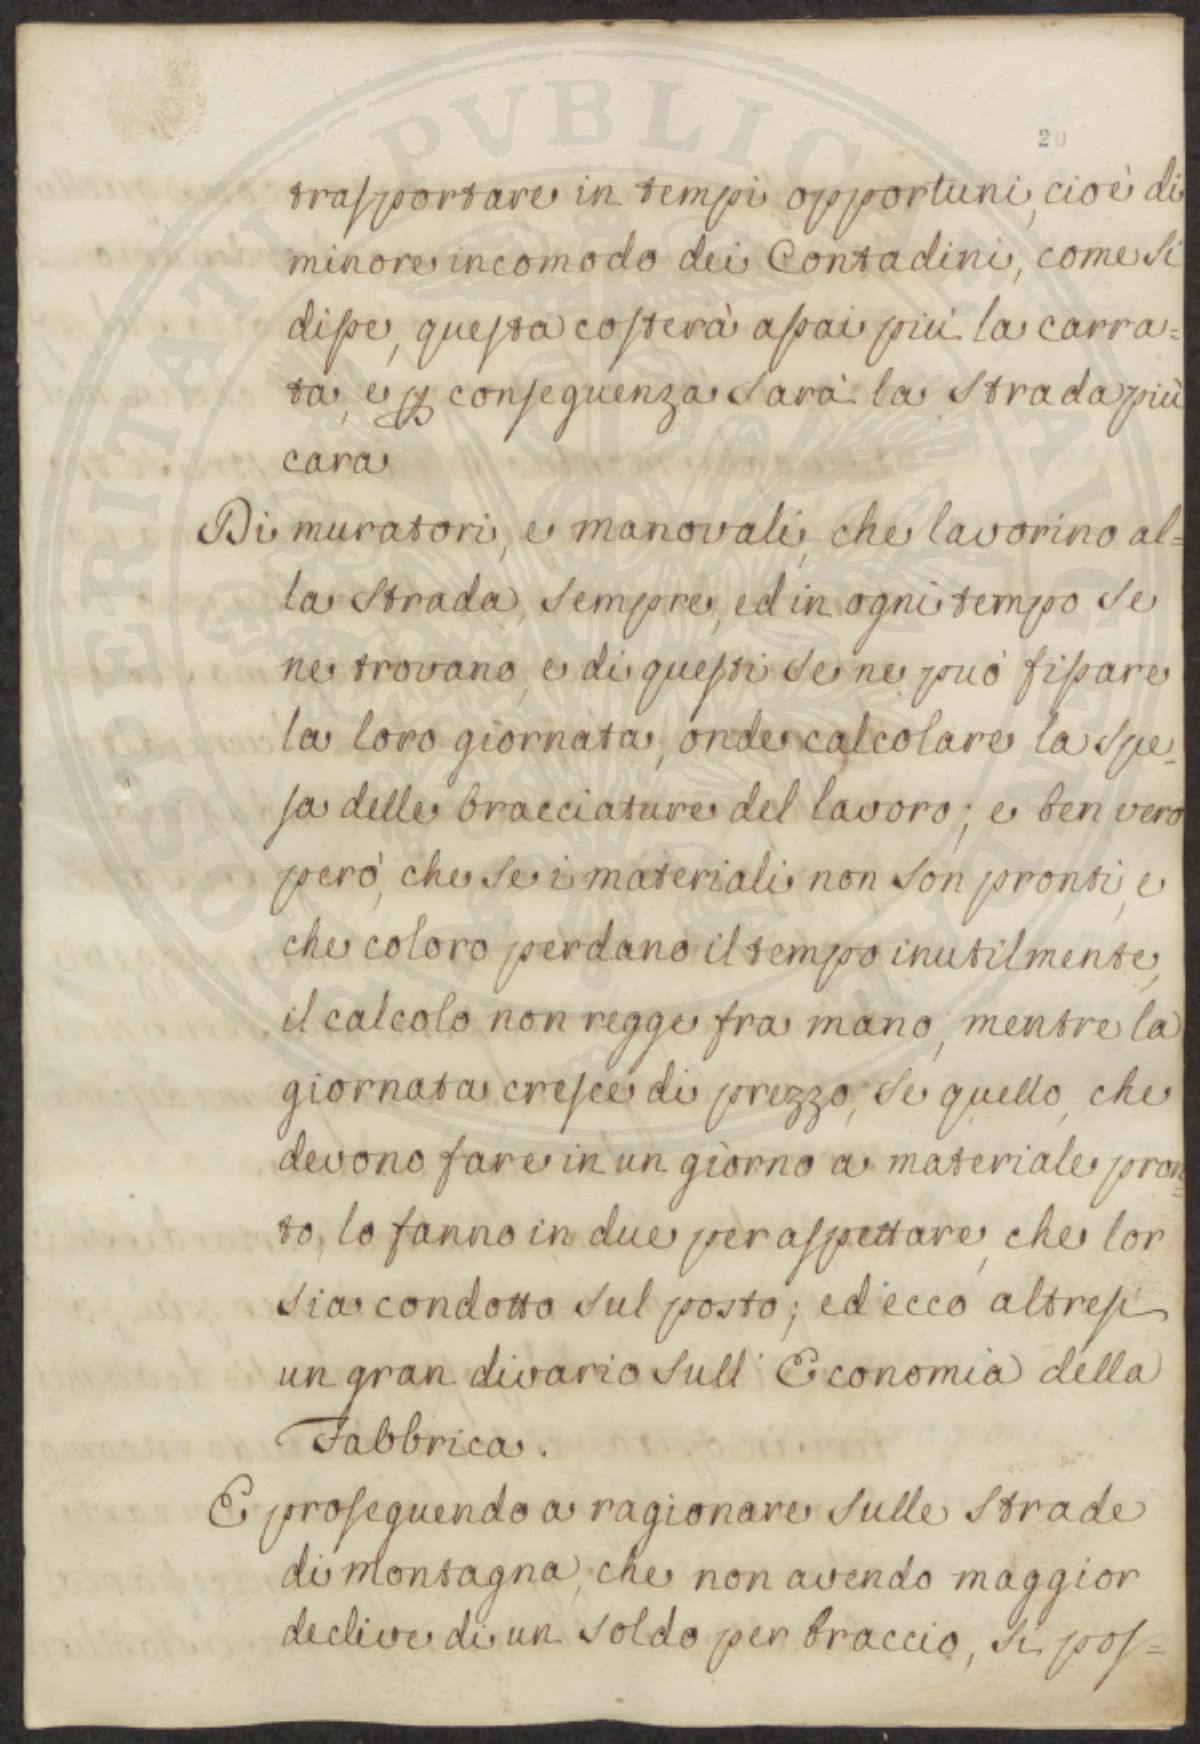 20
trasportare in tempi opportuni, cioè di
minore incomodo dei Contadini, come si
disse, questa costerà assai più la carra=
ta, e p conseguenza sarà la strada più
cara
Di muratori, e manovali, che lavorino al=
la strada, sempre, ed in ogni tempo se
ne trovano, e di questi se ne può fissare
la loro giornata, onde calcolare la spe=
sa delle bracciature del lavoro; e ben vero
però, che se i materiali non son pronti, e
che coloro perdano il tempo inutilmente,
il calcolo non regge fra mano, mentre la
giornata cresce di prezzo, se quello, che
devono fare in un giorno a materiale pron=
to, lo fanno in due per aspettare, che lor
sia condotto sul posto; ed ecco altresì
un gran divario sull' Economia della
Fabbrica.
E proseguendo a ragionare sulle strade
di montagna, che non avendo maggior
declive di un soldo per braccio, si pos=